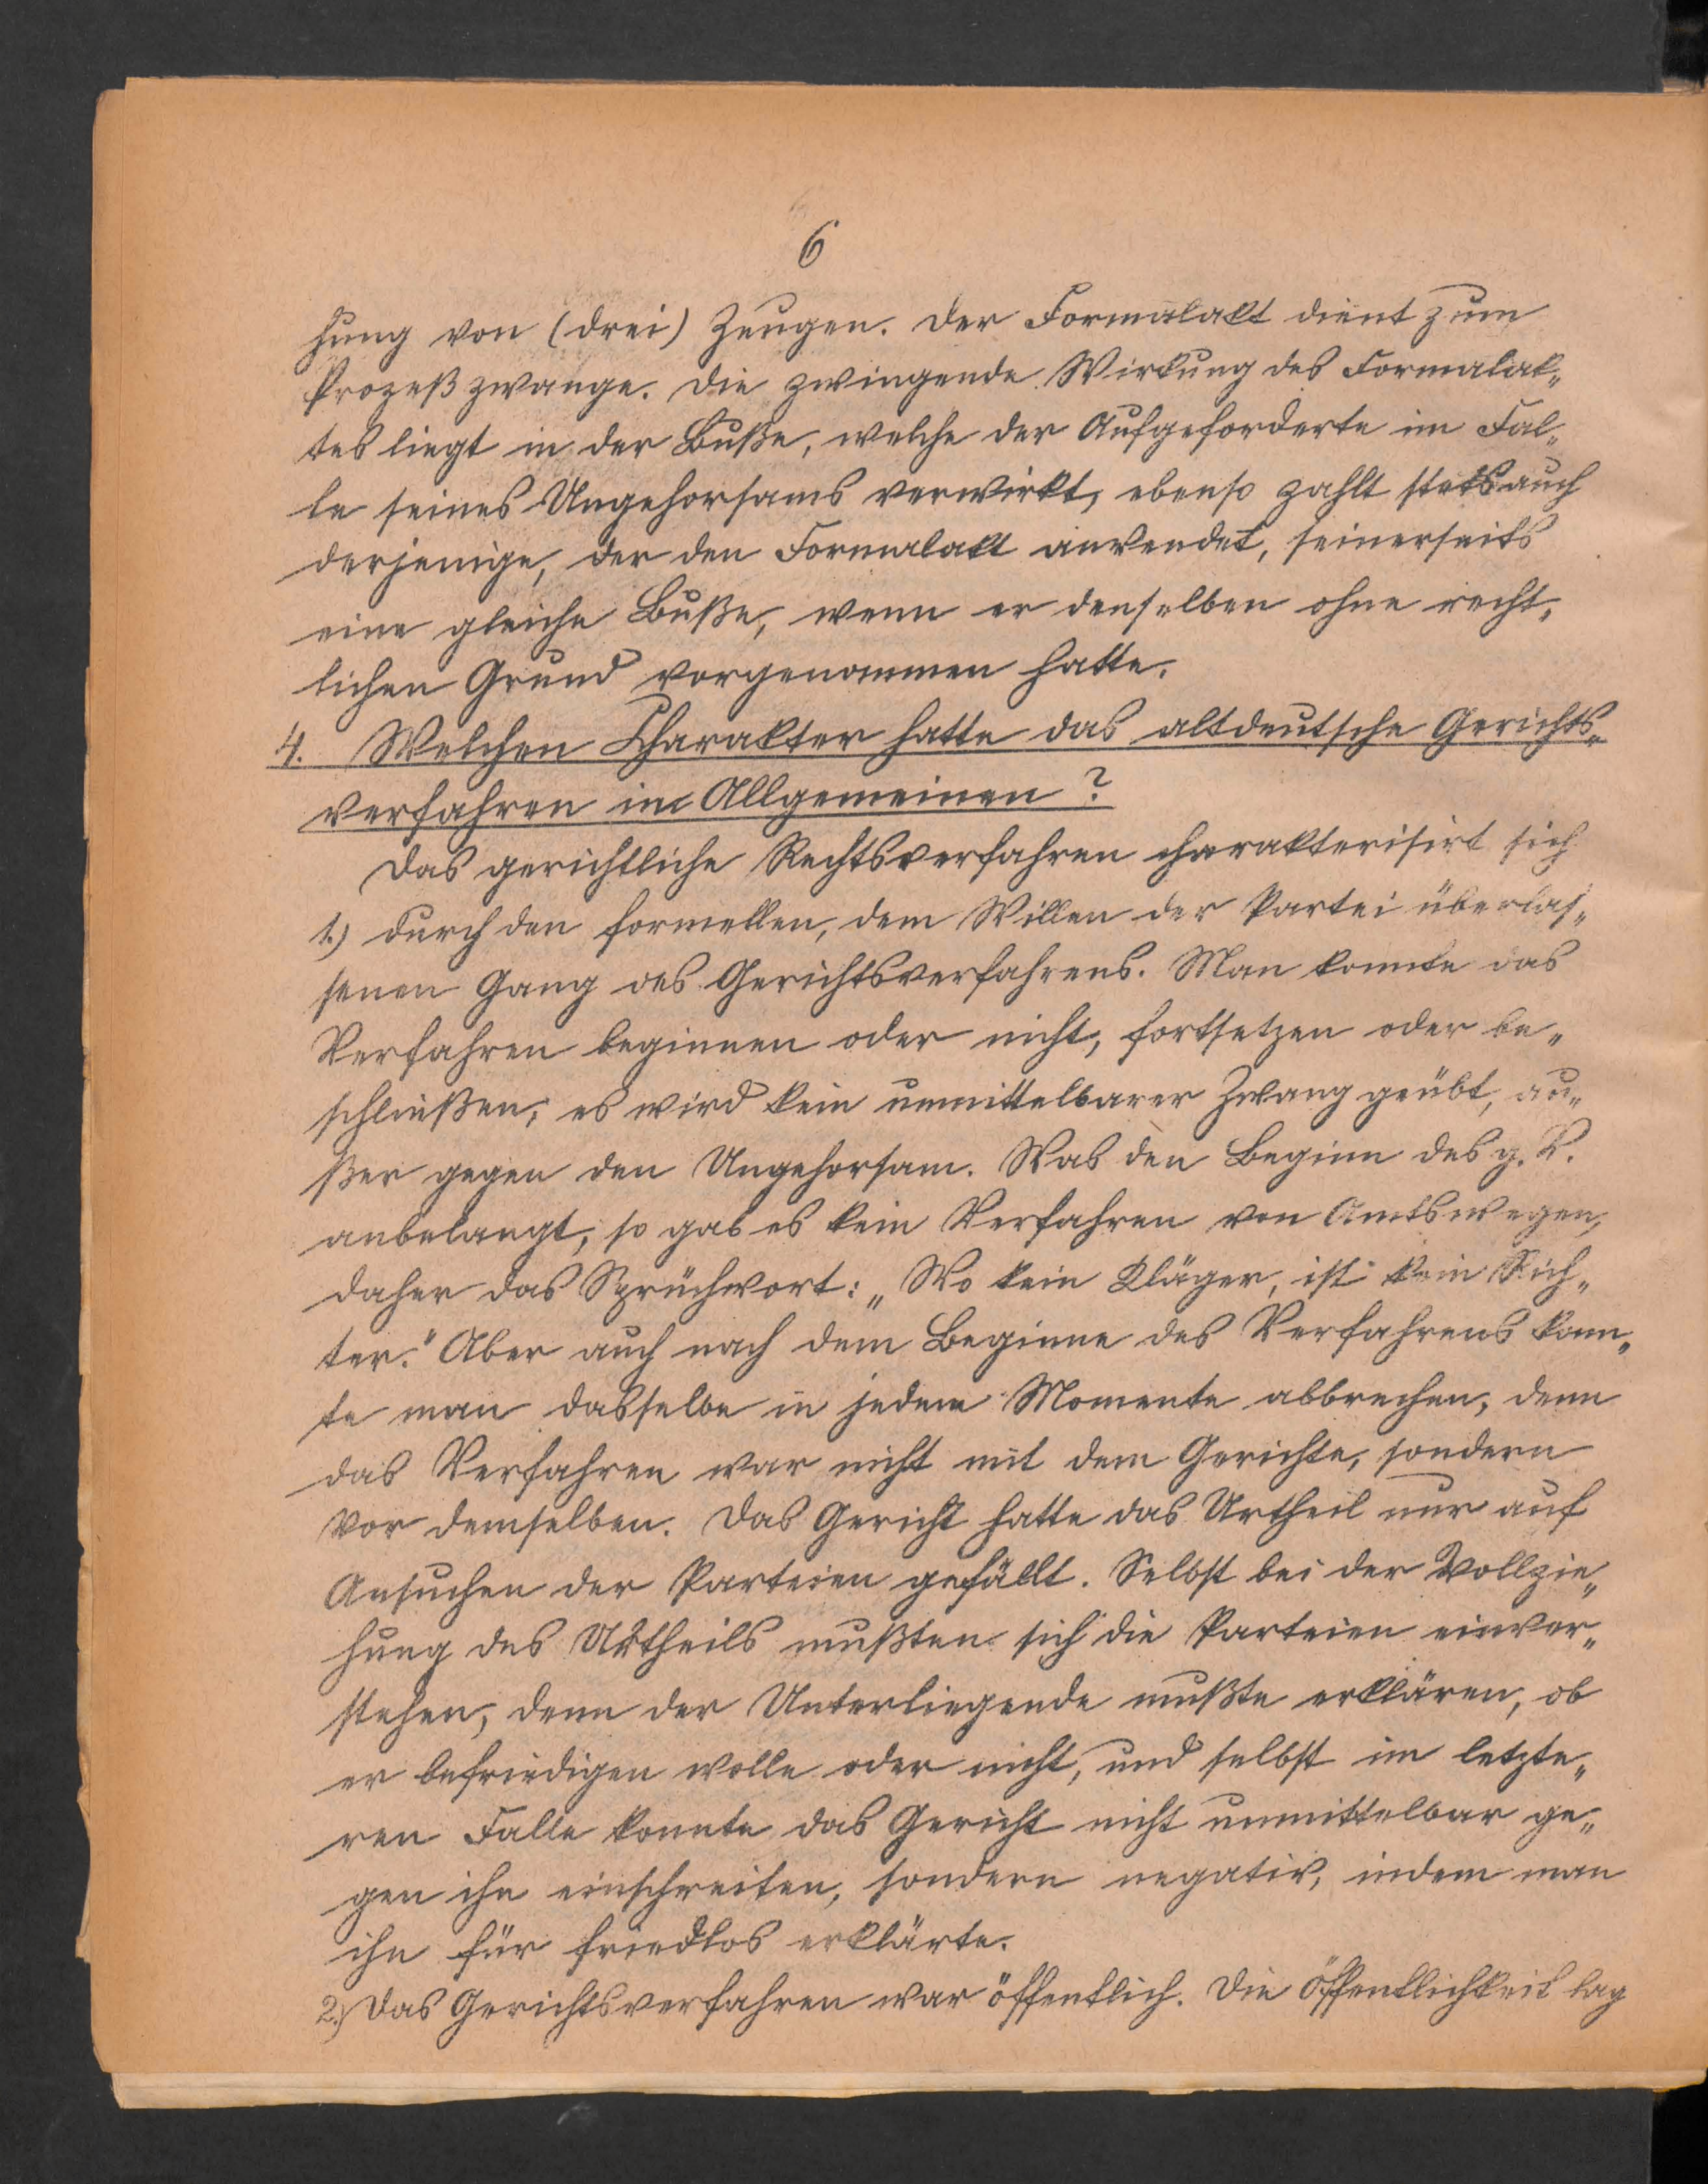 6
hung von (drei) Zeugen. Der Formalakt dient zum
Prozeßzwange. Die zwingende Wirkung des Formalak„
tes liegt in der Buße, welche der Aufgeforderte im Fal„
le seines Ungehorsams verwirkt, ebenso zahlt stets auch
derjenige, der den Formalakt anwendet, seinerseits
eine gleiche Buße, wenn er denselben ohne recht„
lichen Grund vorgenommen hatte.
4. Welchen Charakter hatte das altdeutsche Gerichts„
verfahren im Allgemeinen?
Das gerichtliche Rechtsverfahren charakterisirt sich
1.) durch den formellen, dem Willen der Partei überlas„
senen Gang des Gerichtsverfahrens. Man konnte das
Verfahren beginnen oder nicht, fortsetzen oder be„
schließen; es wird kein unmittelbarer Zwang geübt, au„
ßer gegen den Ungehorsam. Was den Beginn des g. V.
anbelangt, so gab es kein Verfahren von Amtswegen,
daher das Sprüchwort: „Wo kein Kläger, ist kein Rich„
ter." Aber auch nach dem Beginne des Verfahrens konn„
te man dasselbe in jedem Momente abbrechen, denn
das Verfahren war nicht mit dem Gerichte, sondern
vor demselben. Das Gericht hatte das Urtheil nur auf
Ansuchen der Parteien gefällt. Selbst bei der Vollzie„
hung des Urtheils mußten sich die Parteien einver„
stehen, denn der Unterliegende mußte erklären, ob
er befriedigen wolle oder nicht, und selbst im letzte„
ren Falle konnte das Gericht nicht unmittelbar ge„
gen ihn einschreiten, sondern negativ, indem man
ihn für friedlos erklärte.
2.) Das Gerichtsverfahren war öffentlich. Die Öffentlichkeit lag